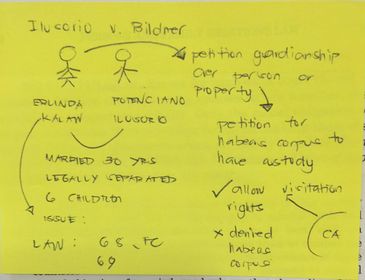 Ilusorio v. Bildner
petition guardianship
over person or
property
ERLINDA
KALAW
POTENCIANO
ILUSORIO
petition for
habeas corpus to
have custody
MARRIED 30 YRS
LEGALLY SEPARATED
6 CHILDREN
ISSUE:
✓ allow visitation
rights
x denied
habeas
corpus
CA
LAW: 68, FC
69